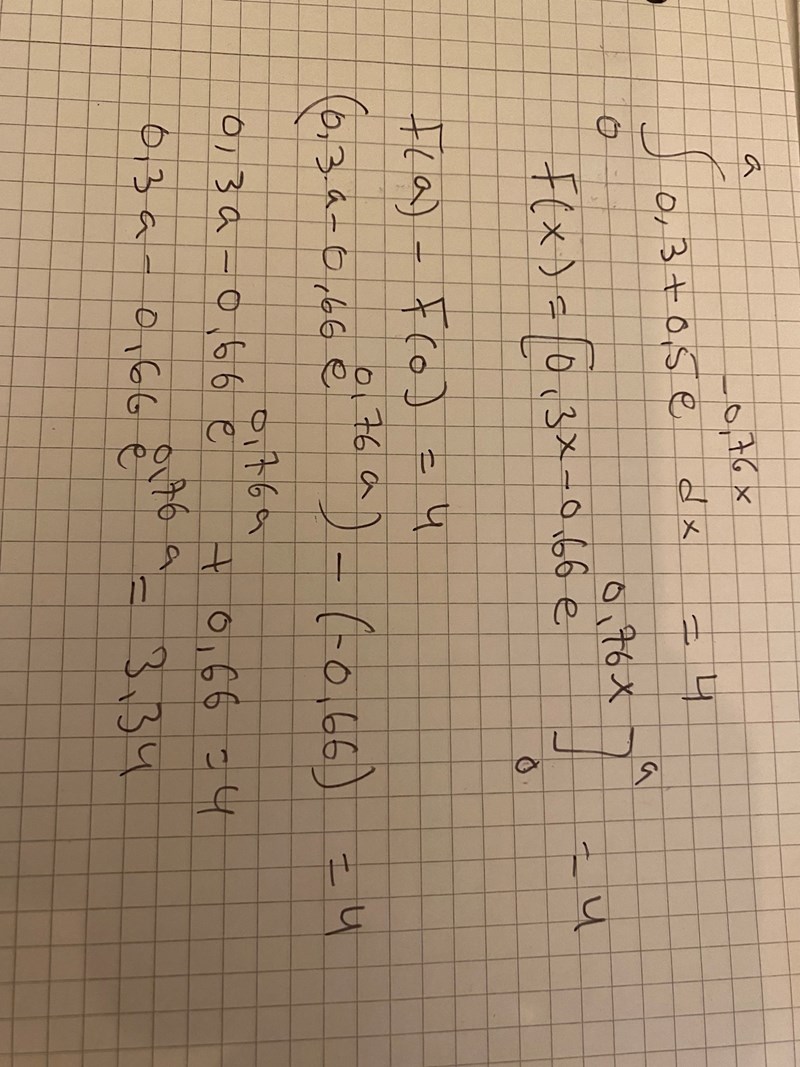 ∫₀ᵃ 0,3 + 0,5e^(-0,76x) dx = 4
F(x) = [0,3x - 0,66e^(0,76x)]₀ᵃ = 4
F(a) - F(0) = 4
(0,3·a - 0,66e^(0,76a)) - (-0,66) = 4
0,3a - 0,66e^(0,76a) + 0,66 = 4
0,3a - 0,66e^(0,76a) = 3,34